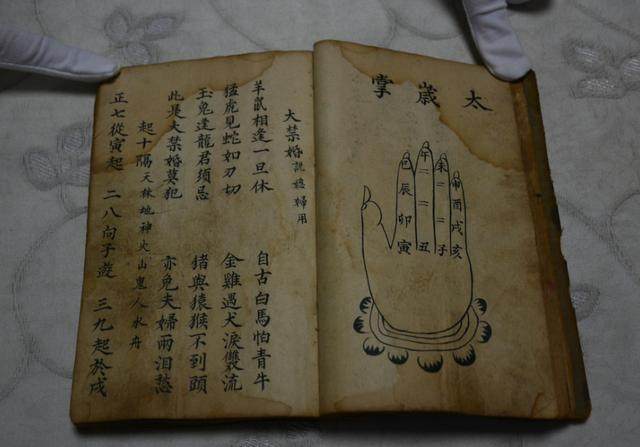 太歲掌
巳 午 未 申
辰 二 二 酉
卯 二 二 戌
寅 丑 子 亥
大禁婚 婦用
羊鼠相逢一旦休 自古白馬怕青牛
猛虎見蛇如刃切 金雞遇犬淚雙流
玉兔逢龍君須忌 豬與猿猴不到頭
此是大禁婚莫犯 亦免夫婦兩泪愁
起十隔天林地神火山鬼人水舟
正七從寅起 二八向子遊 三九起於戌